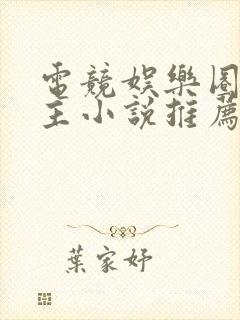 電競娛樂圈
主小說推薦
葉家妤